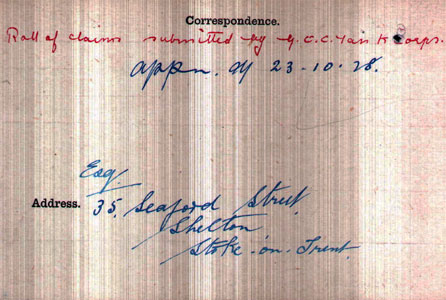 Correspondence.
Roll of claims submitted by G.O.C. Tank Corps.
appn. dy 23-10-28.
Esq.
Address. 35, Seaford Street
Shelton
Stoke-on-Trent